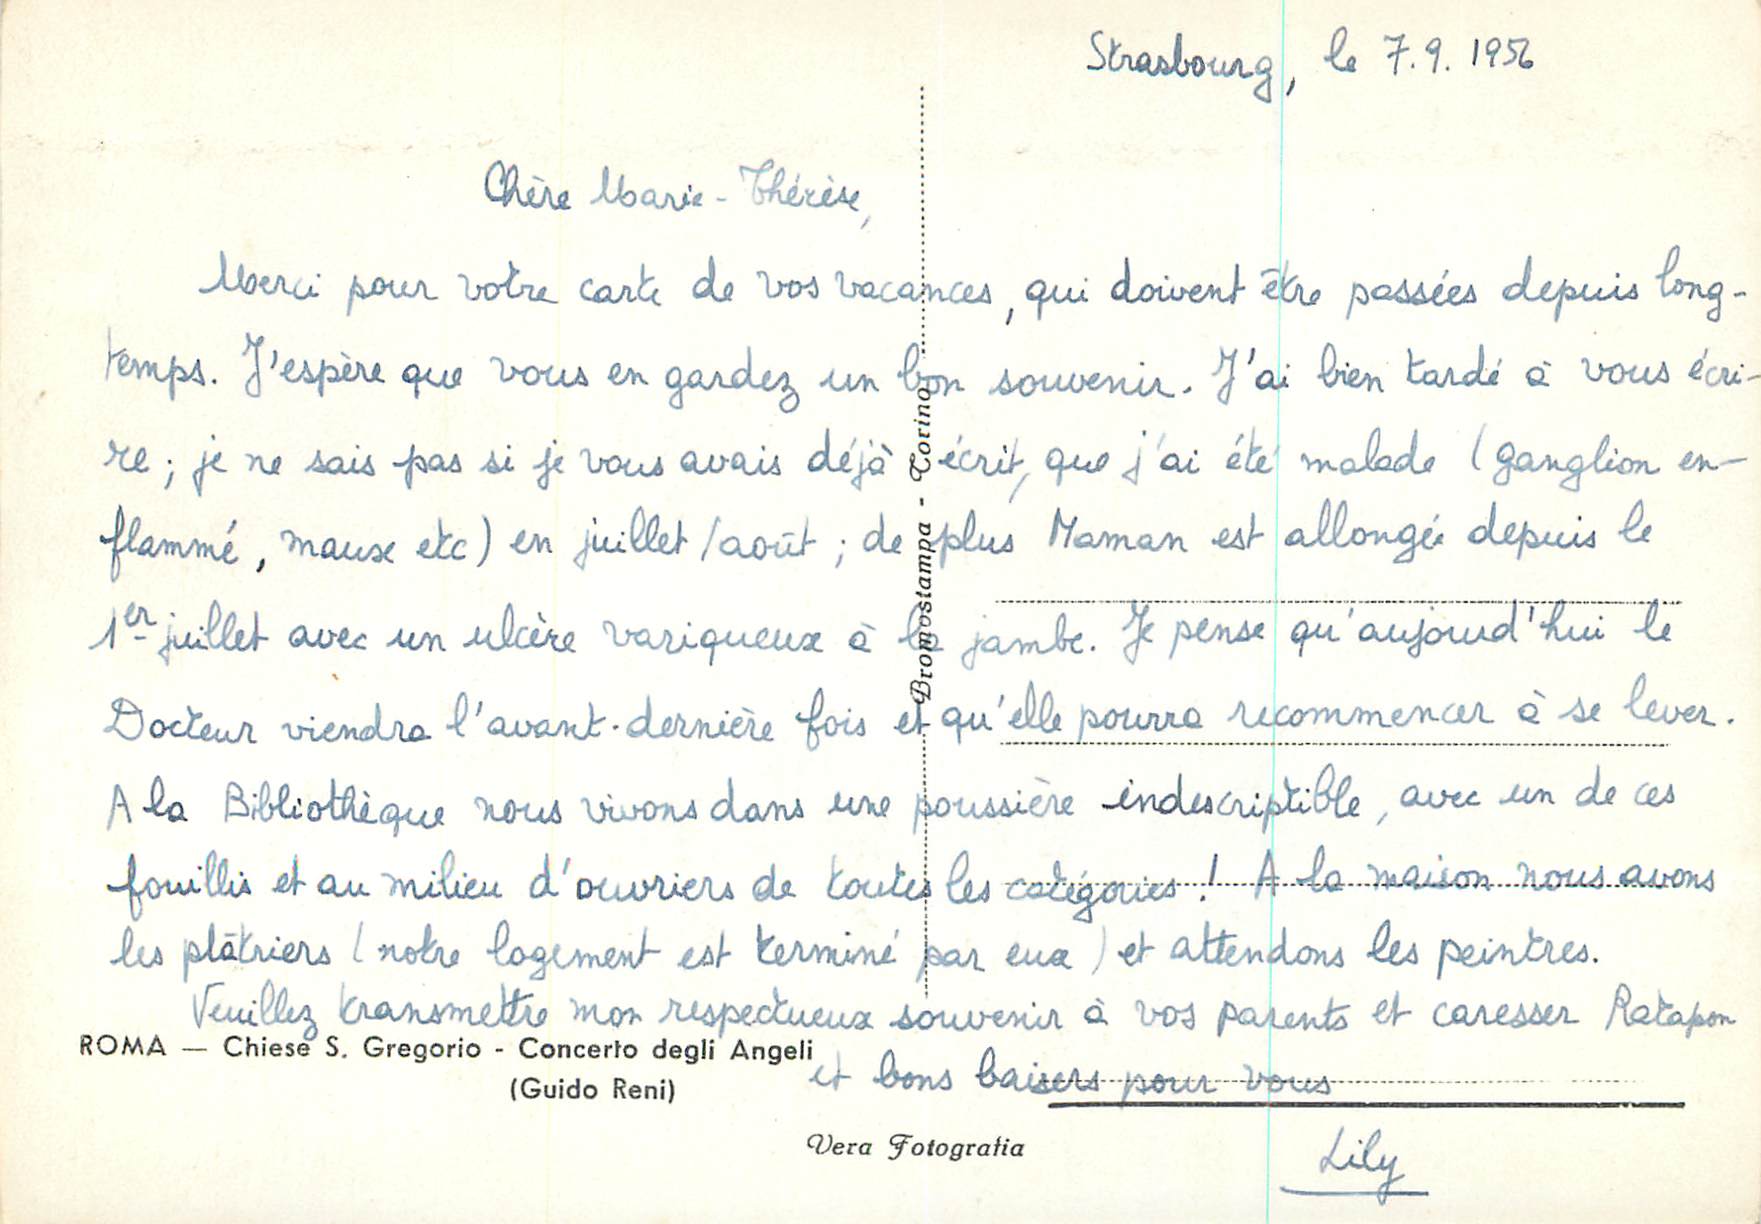 Strasbourg, le 7.9.1956
Chère Marie-Thérèse,
Merci pour votre carte de vos vacances, qui doivent être passées depuis long-
temps. J'espère que vous en gardez un bon souvenir. J'ai bien tardé à vous écri-
re ; je ne sais pas si je vous avais déjà écrit, que j'ai été malade (ganglion en-
flammé, maux etc) en juillet/août ; de plus Maman est allongée depuis le
1er juillet avec un ulcère variqueux à la jambe. Je pense qu'aujourd'hui le
Docteur viendra l'avant-dernière fois et qu'elle pourra recommencer à se lever.
A la Bibliothèque nous vivons dans une poussière indescriptible, avec un de ces
fouillis et au milieu d'ouvriers de toutes les catégories ! A la maison nous avons
les plâtriers (notre logement est terminé par eux) et attendons les peintres.
Veuillez transmettre mon respectueux souvenir à vos parents et caresser Ratapon
et bons baisers pour vous
Lily
ROMA — Chiese S. Gregorio - Concerto degli Angeli
(Guido Reni)
Vera Fotografia
Bromostampa - Torino